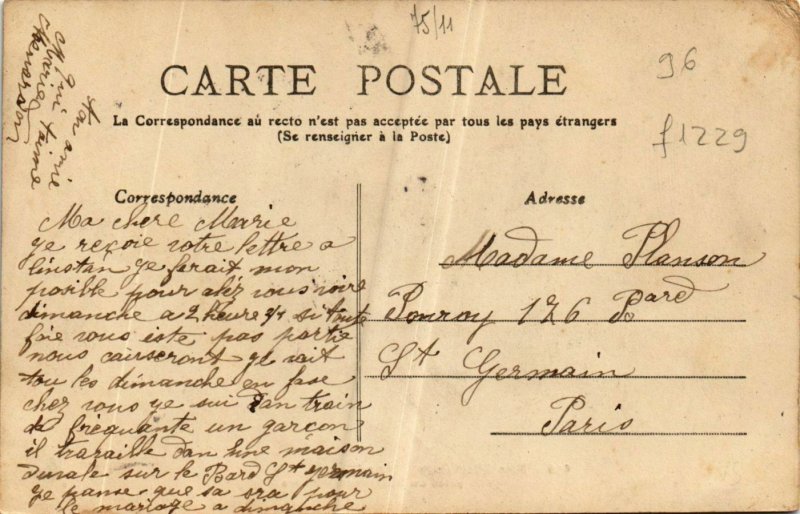 75/11
96
f1229
CARTE POSTALE
La Correspondance aù recto n'est pas acceptée par tous les pays étrangers
(Se renseigner à la Poste)
Correspondance
Ma chere Marie
je reçoie votre lettre a
linstan je ferait mon
posible pour alez vous voire
dimanche a 2 heure si toute
foie vous iste pas partie
nous cairseront je vait
tou les dimanche en fase
chez vous je sui dan train
de fréquante un garçon
il traraille dan une maison
durale sur le Bard St germain
je panse que sa sra pour
le mariaze a dimanche
ton amie
qui taime
Marie
Adresse
Madame Planson
Pouroy 126 Bard
St Germain
Paris